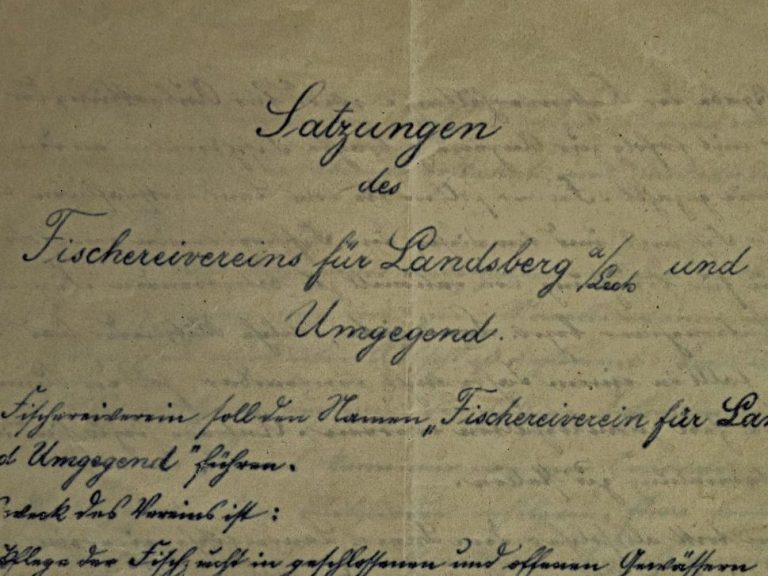 Satzungen
des
Fischereivereins für Landsberg a/Lech und
Umgegend.
Fischereiverein soll den Namen „Fischereiverein für Lan
d Umgegend" führen.
Zweck des Vereins ist:
Pflege der Fischzucht in geschlossenen und offenen Gewässern